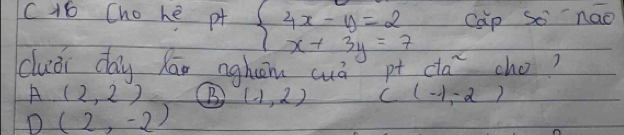 C 16 Cho hệ pt { 4x - y = 2 Cặp số nào
x + 3y = 7
dưới đây là nghiệm của pt đã cho ?
A. (2, 2) B. (1, 2) C (-1, -2)
D (2, -2)